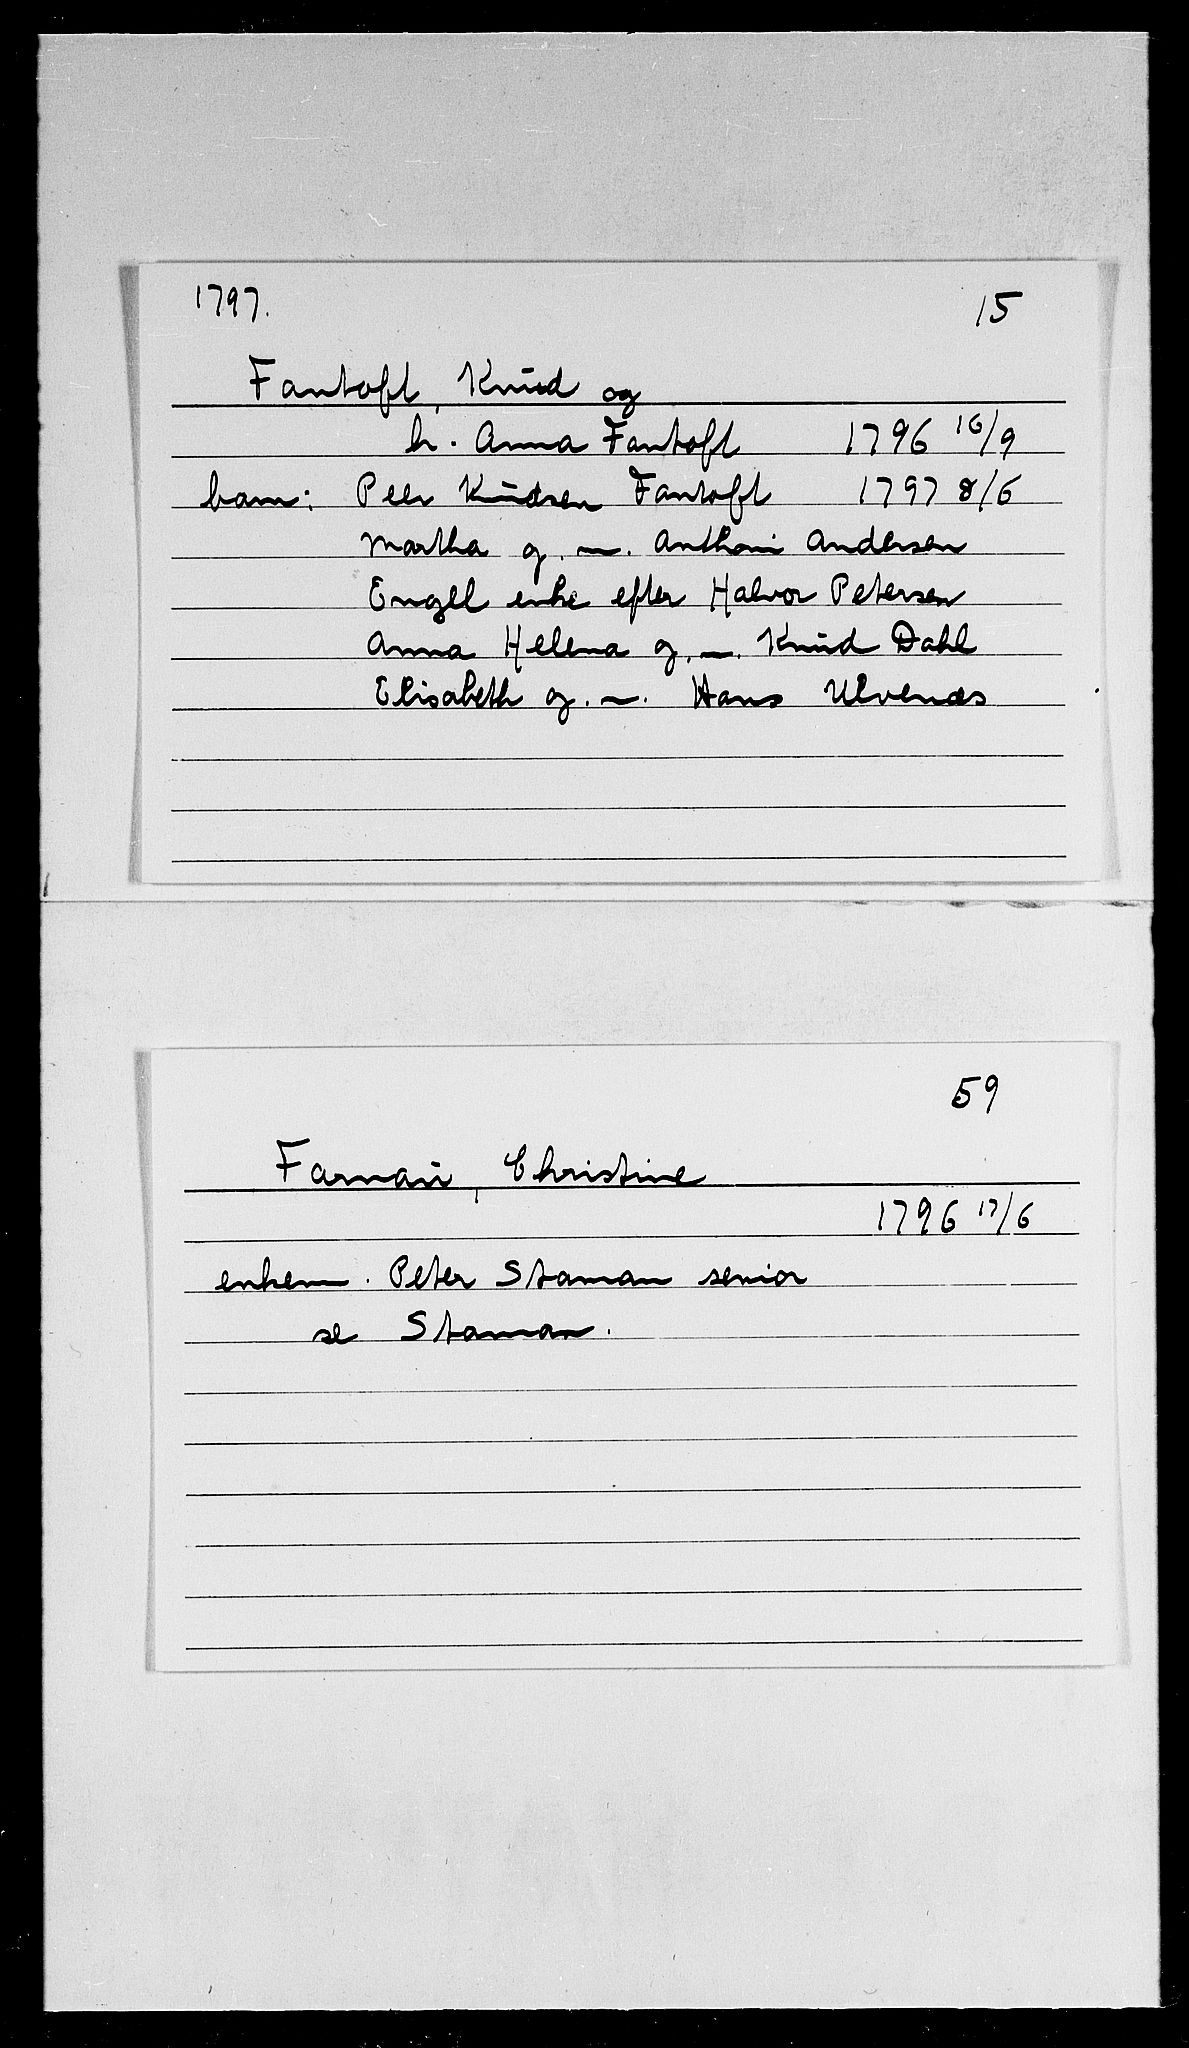 1797. 15
Fantoft, Knud og
h. Anna Fantoft 1796 16/9
barn: Peer Knudsen Fantoft 1797 8/6
Martha g. m. Anthoni Andersen
Engel enke efter Halvor Petersen
Anna Helena g. m. Knud Dahl
Elisabeth g. m. Hans Ulvenæs
59
Farnau, Christine
1796 17/6
enkem. Peter Staman senior
se Staman.